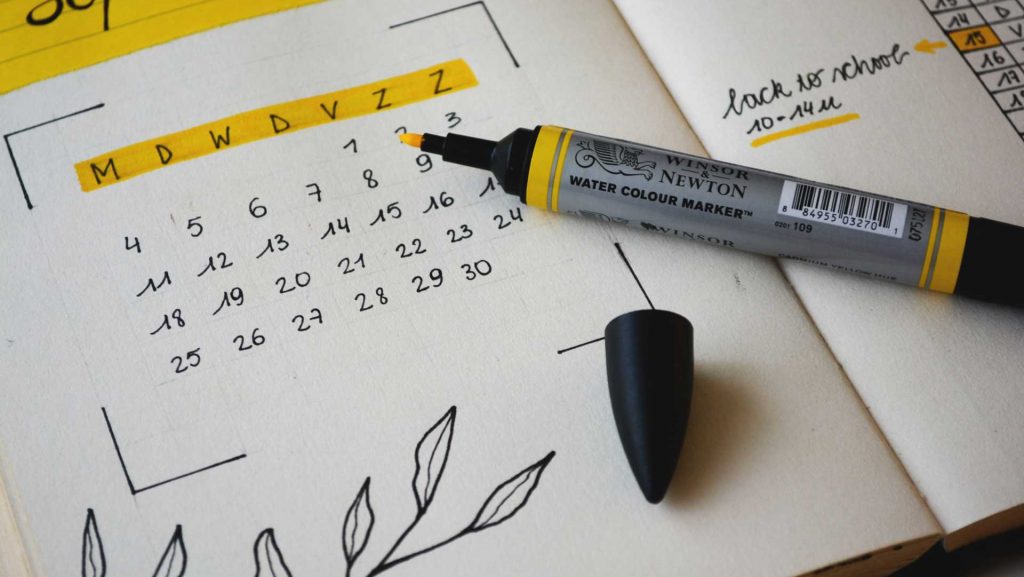 M D W D V Z Z
1 2 3
4 5 6 7 8 9
11 12 13 14 15 16
18 19 20 21 22 23 24
25 26 27 28 29 30
WINSOR
&
NEWTON
WATER COLOUR MARKER™
0201 109
8 84955 03270 1
WINSOR
CADMIUM YELLOW HUE
back to school
10-14u
14 D
15 V
16
17